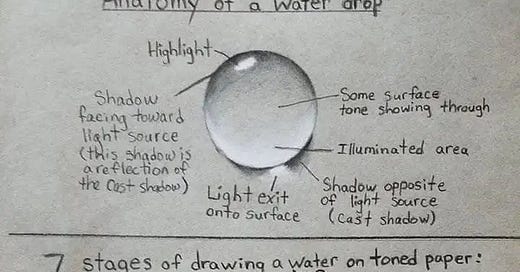 Anatomy of a water drop
Highlight
Shadow
facing toward
light source
(this shadow is
a reflection of
the cast shadow)
Some surface
tone showing through
Illuminated area
Light exit
onto surface
Shadow opposite
of light source
(cast shadow)
7 stages of drawing a water on toned paper: